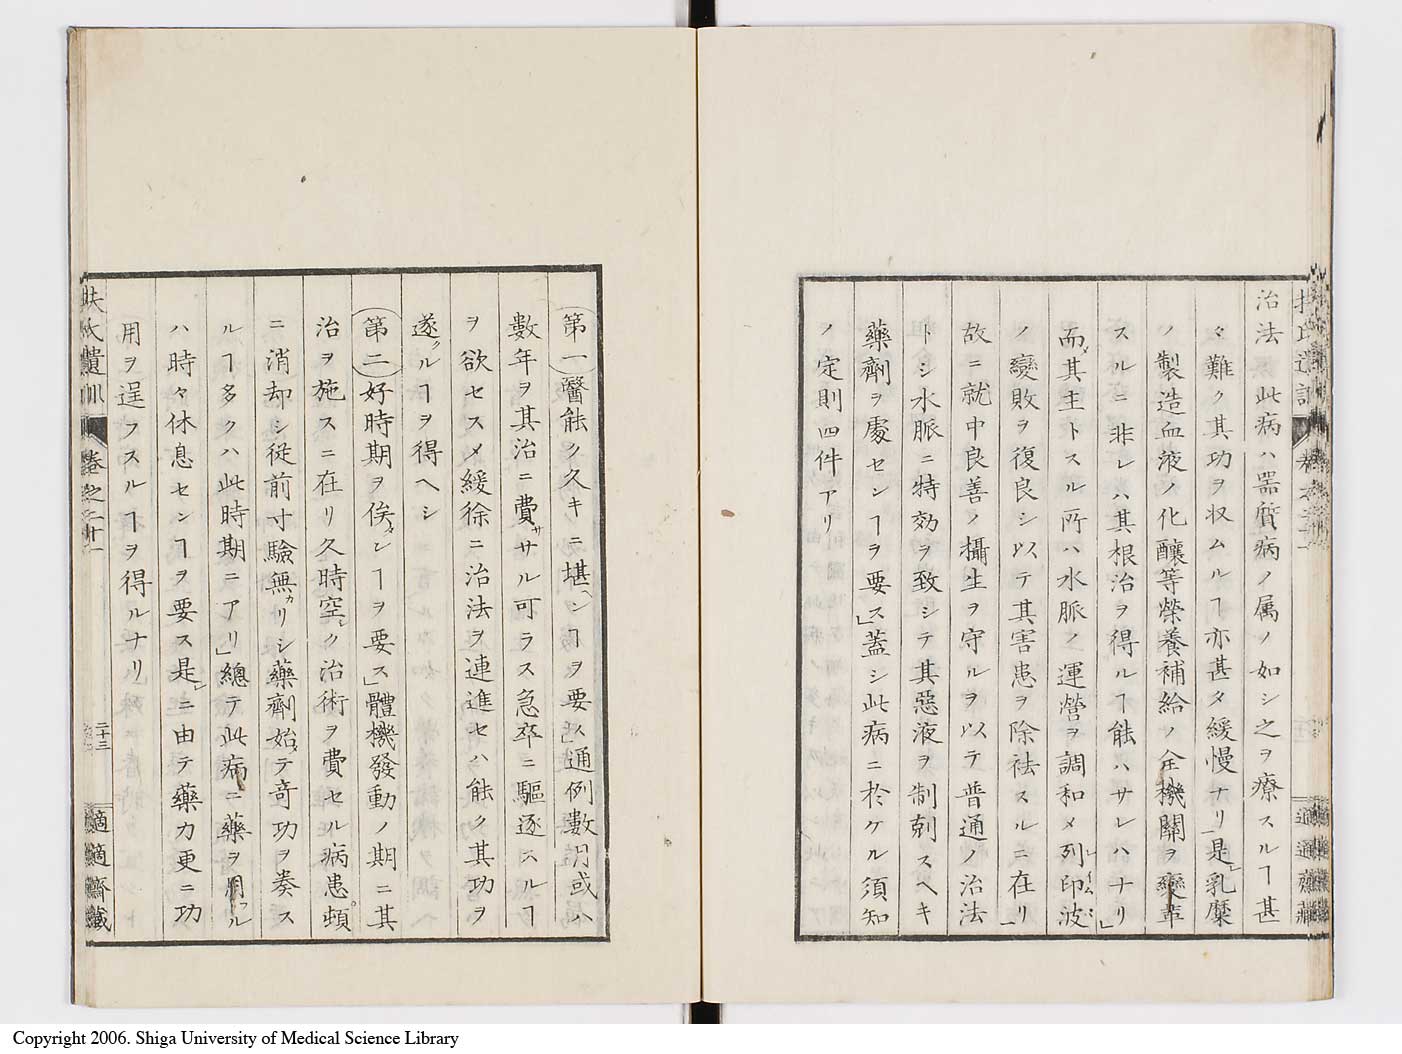 治法 此病ハ器質病ノ属ノ如シ之ヲ療スルヿ甚
タ難ク其功ヲ収ムルヿ亦甚タ緩慢ナリ是レ乳糜
ノ製造血液ノ化釀等榮養補給ノ全機關ヲ變革
スルニ非レハ其根治ヲ得ルヿ能ハサレハナリ」
而メ其主トスル所ハ水脈ノ運營ヲ調和メ列印波
ノ變敗ヲ復良シ以テ其害患ヲ除祛スルニ在リ
故ニ就中良善ノ攝生ヲ守ルヲ以テ普通ノ治法
トシ水脈ニ特効ヲ致シテ其惡液ヲ制剋スヘキ
藥劑ヲ處センヿヲ要ス」蓋シ此病ニ於ケル須知
ノ定則四件アリ
第一醫能ク久キニ堪ンヿヲ要ス」通例數月或ハ
數年ヲ其治ニ費サヽル可ラス急卒ニ驅逐スルヿ
ヲ欲セスメ緩徐ニ治法ヲ連進セハ能ク其功ヲ
遂クルヿヲ得ヘシ
第二好時期ヲ俟ンヿヲ要ス」體機發動ノ期ニ其
治ヲ施スニ在リ久時空シク治術ヲ費セル病患頓
ニ消却シ從前寸驗無カリシ藥劑始テ奇功ヲ奏ス
ルヿ多クハ此時期ニアリ」總テ此病ニ藥ヲ用フル
ハ時々休息センヿヲ要ス是レニ由テ藥力更ニ功
用ヲ逞フスルヿヲ得ルナリ
扶氏遺訓 卷之二十一 二十三 適適齋藏